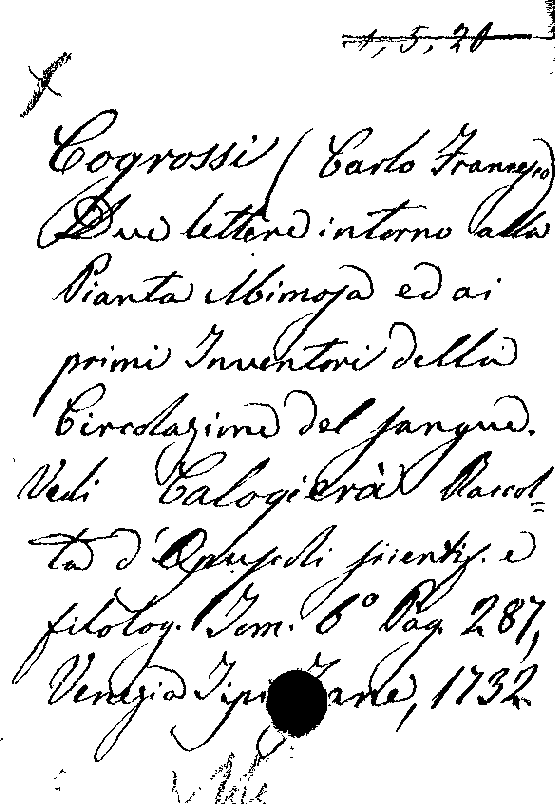 1, 5, 20
Cogrossi (Carlo Francesco)
Due lettere intorno alla
Pianta Mimosa ed ai
primi Inventori della
Circolazione del sangue.
Vedi Calogierà Raccol=
ta d'Opuscoli scientif. e
filolog. Tom. 6º Pag. 287,
Venezia Zane, 1732